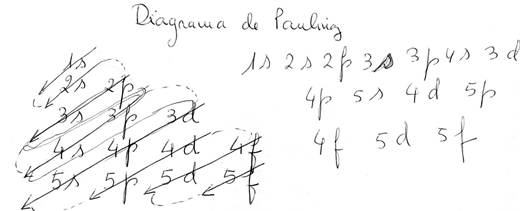 Diagrama de Pauling
1s
2s 2p
3s 3p 3d
4s 4p 4d 4f
5s 5p 5d 5f
1s 2s 2p 3s 3p 4s 3d
4p 5s 4d 5p
4f 5d 5f